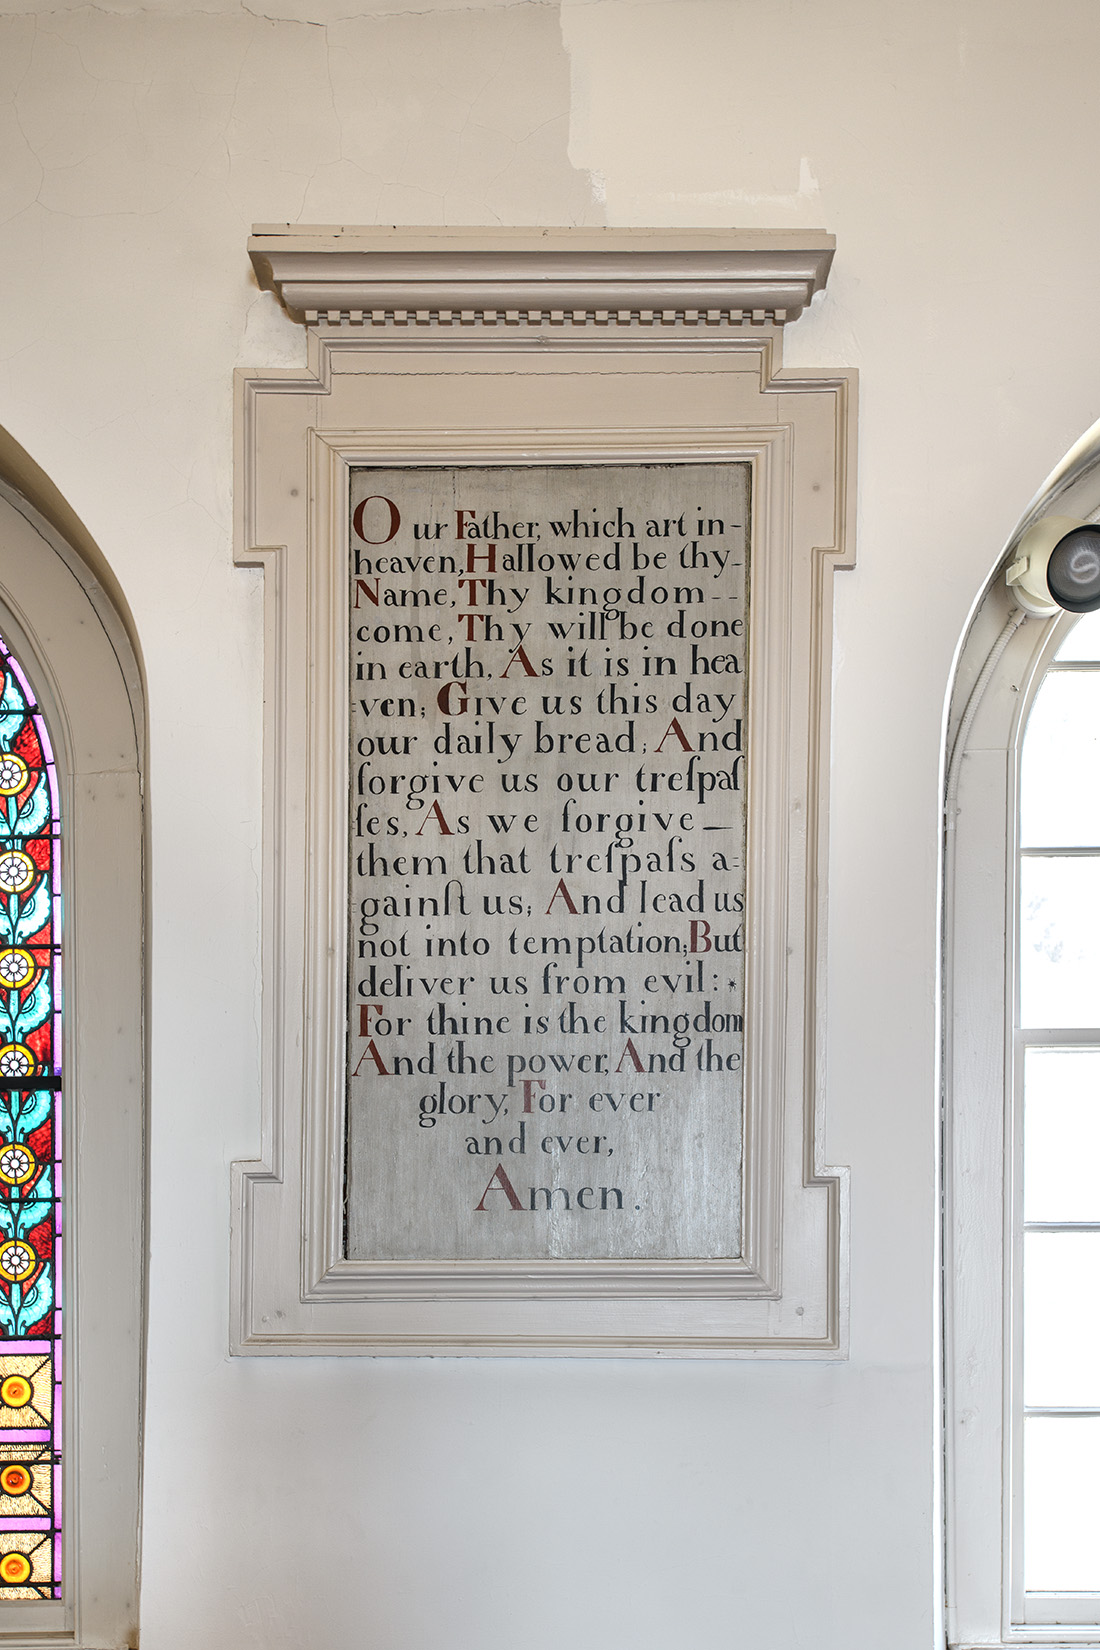 Our Father, which art in-
heaven, Hallowed be thy-
Name, Thy kingdom--
come, Thy will be done
in earth, As it is in hea
=ven; Give us this day
our daily bread; And
forgive us our treſpaſ
ſes, As we forgive—
them that treſpaſs a=
=gainſt us; And lead us
not into temptation; But
deliver us from evil: *
For thine is the kingdom
And the power, And the
glory, For ever
and ever,
Amen.